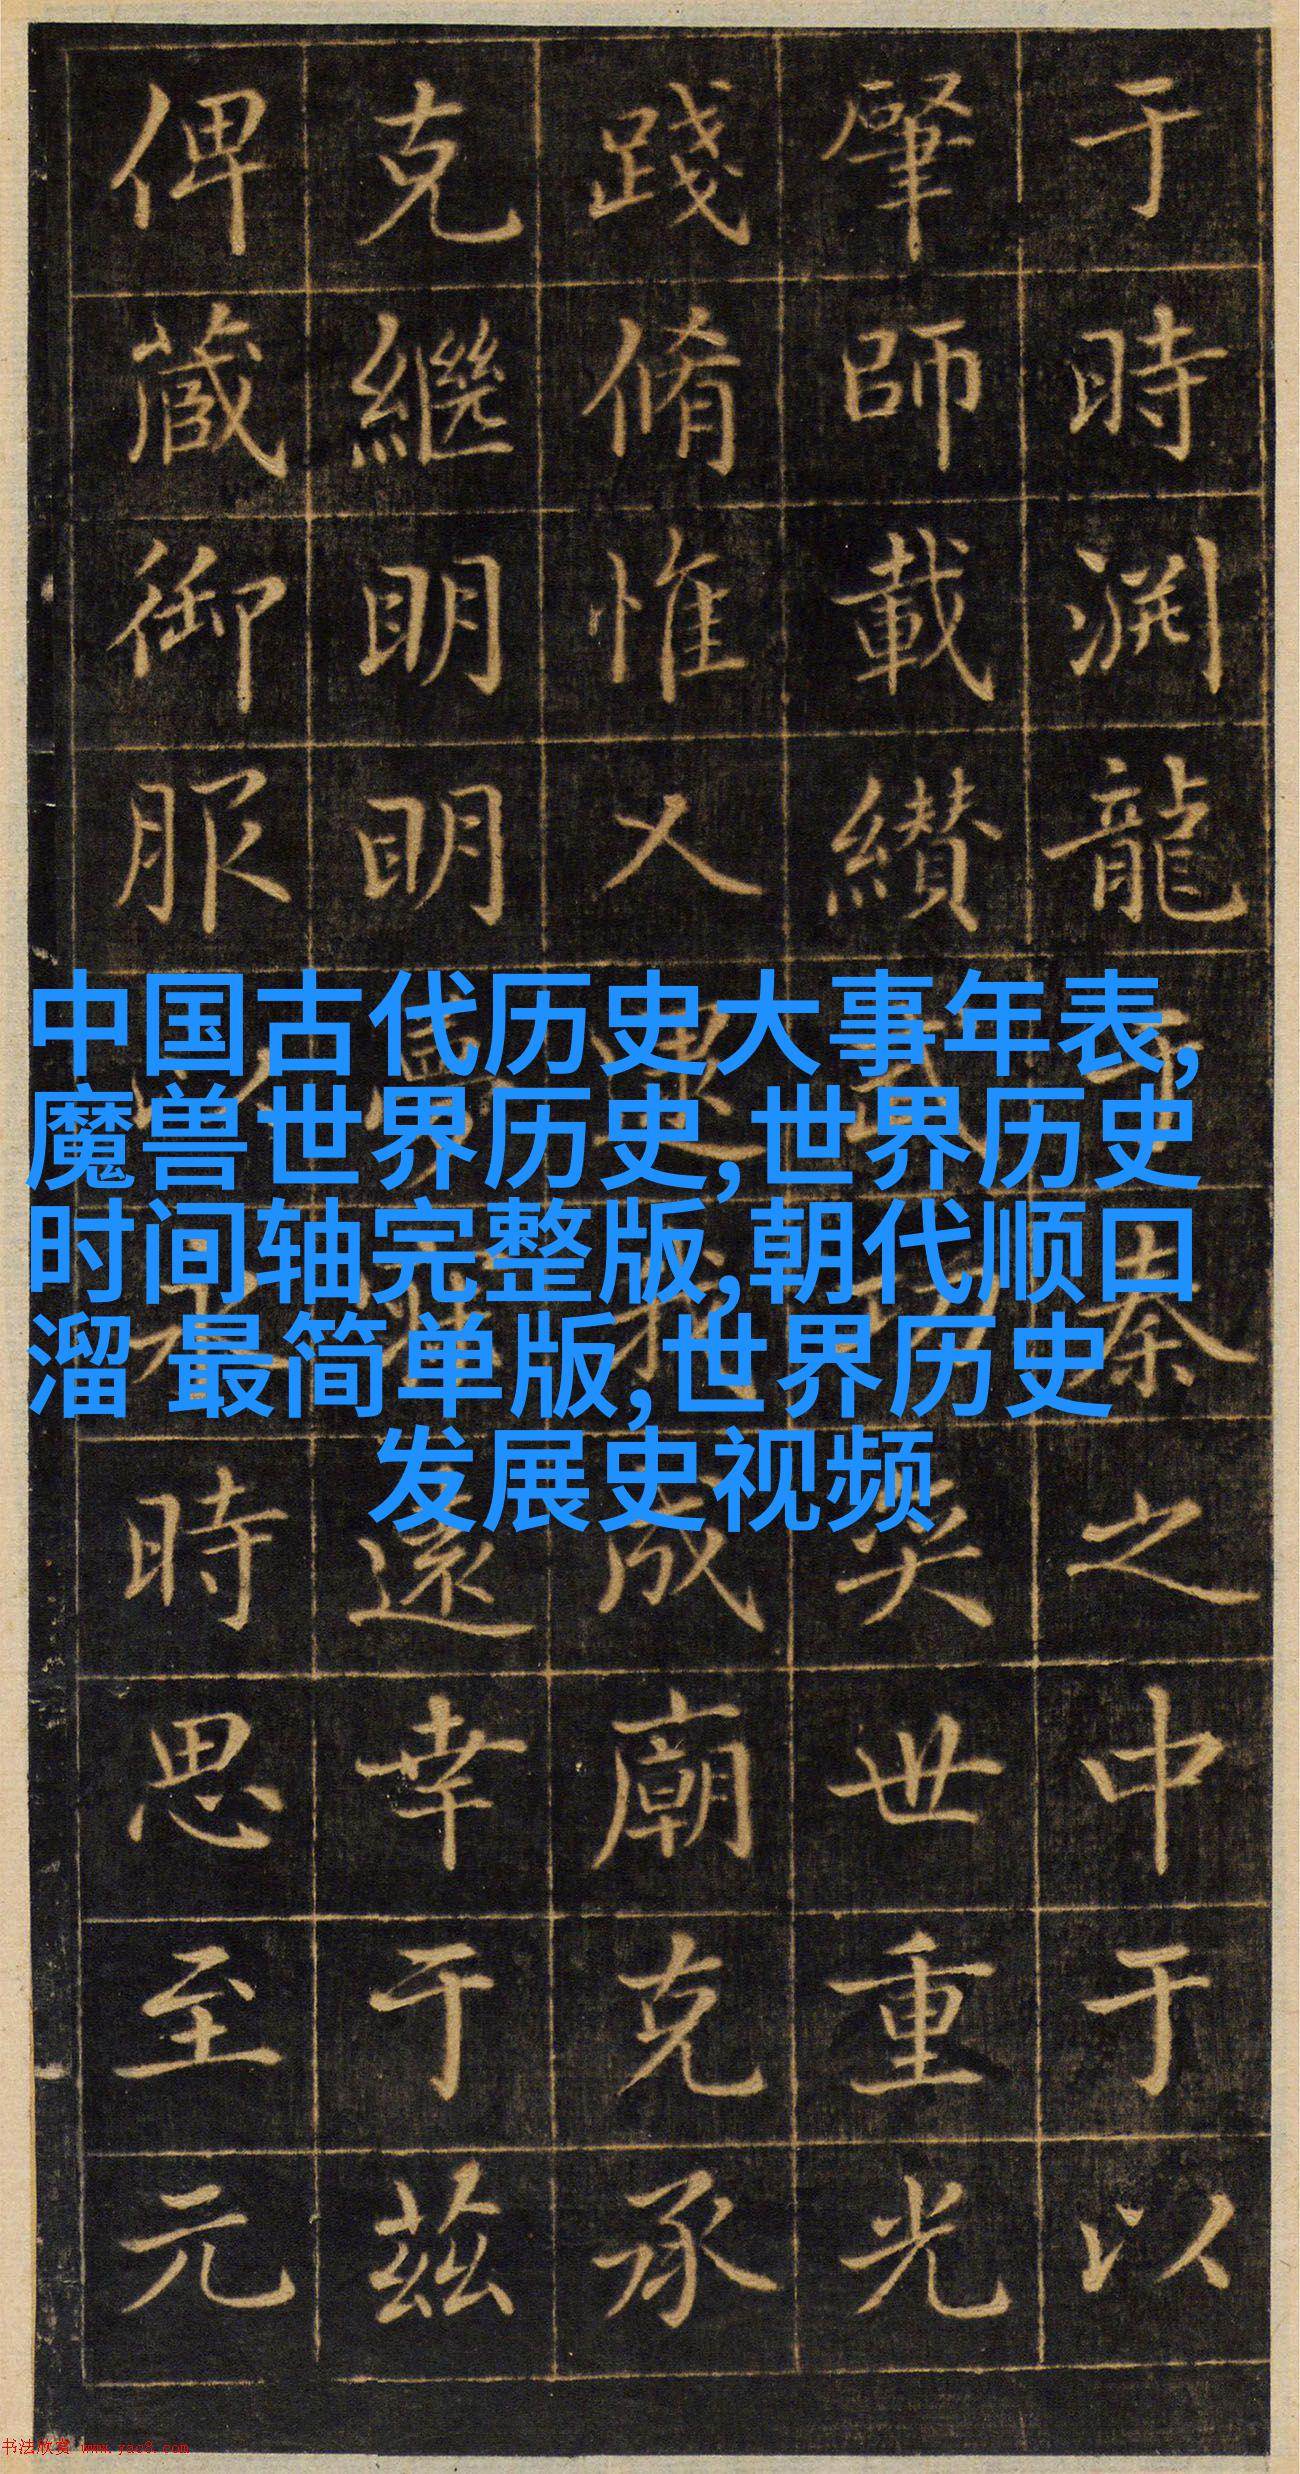 于時渊龍于秦之中于以
肇師載纘武功奕世重光
踐脩惟乂我成廟克承
克繼明明遠幸于茲
俾蔵御服以時思至元
中国古代历史大事年表,
魔兽世界历史,世界历史
时间轴完整版,朝代顺口
溜 最简单版,世界历史
发展史视频
书法欣赏 www.yac8.com